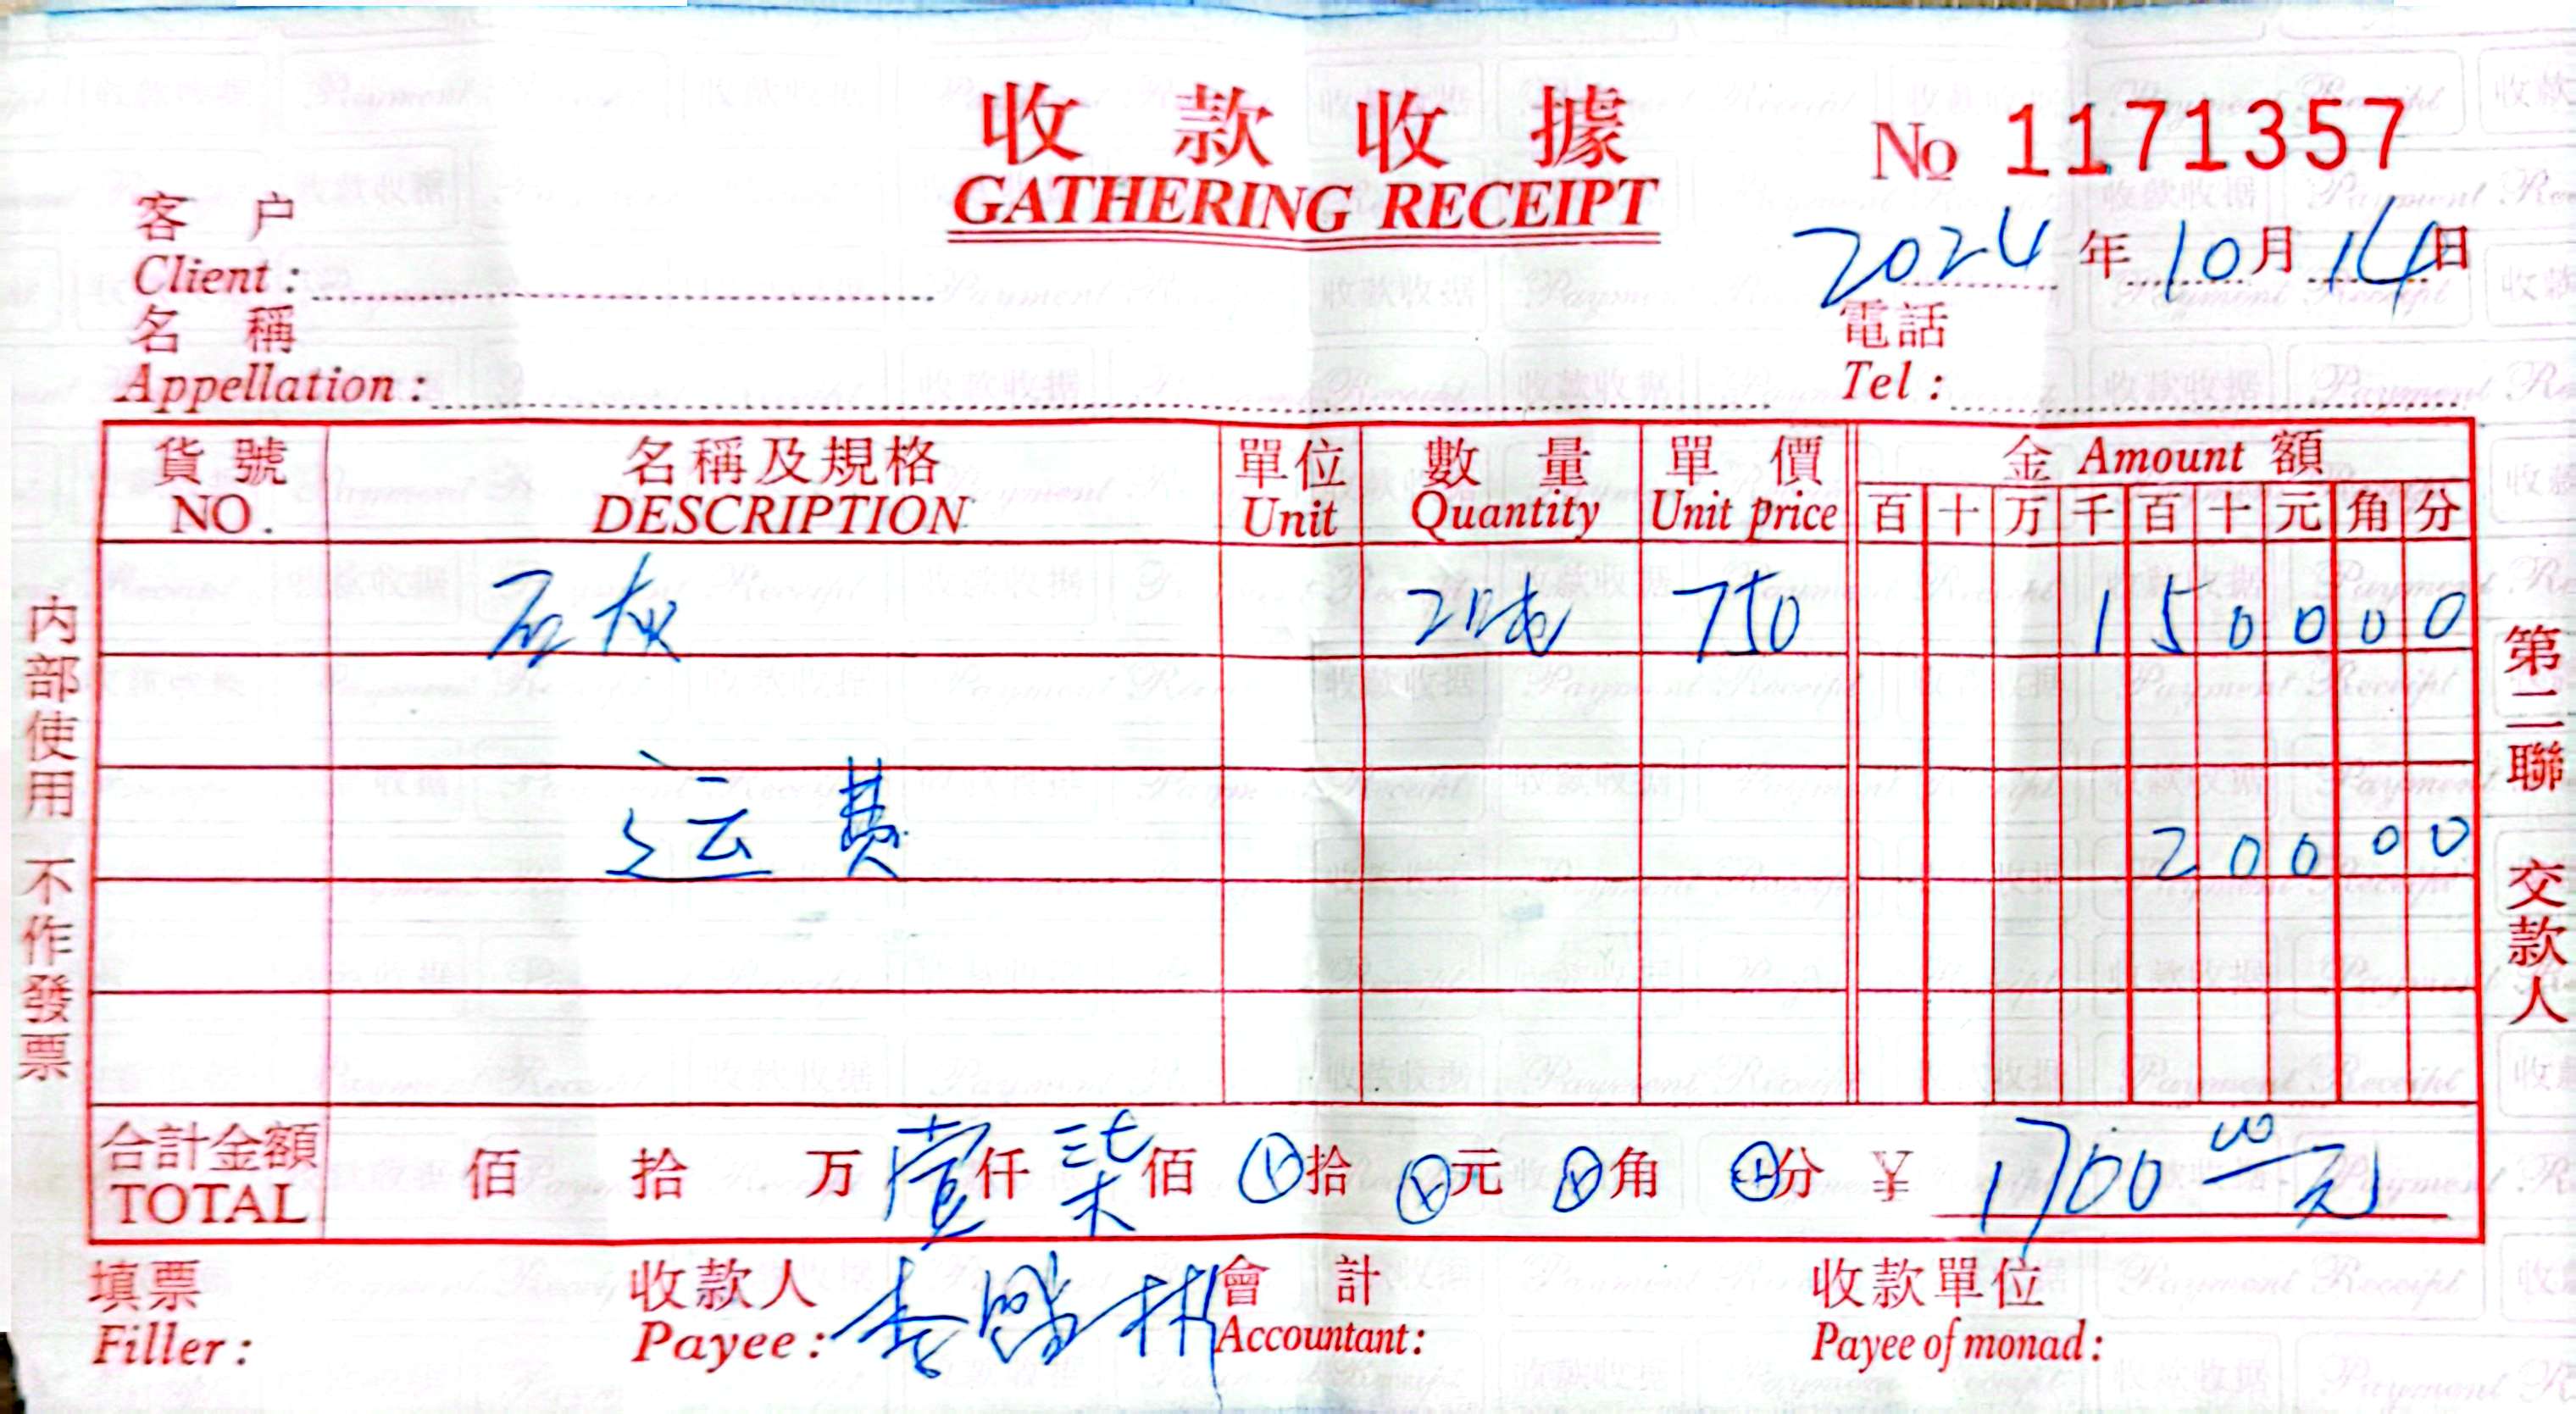 收款收據
GATHERING RECEIPT
No 1171357
2024年10月14日
客户
Client:
名稱
Appellation:
電話
Tel:
貨號 名稱及規格 單位 數量 單價 金 Amount 額
NO. DESCRIPTION Unit Quantity Unit price 百 十 万 千 百 十 元 角 分
石灰 2吨 750 1 5 0 0 0 0
运费 2 0 0 0 0
合計金額 佰 拾 万 壹仟 柒佰 拾 元 角 分 ¥ 1700.00元
TOTAL
填票 收款人 會計 收款單位
Filler: Payee: Accountant: Payee of monad:
内部使用 不作發票
第二聯 交款人